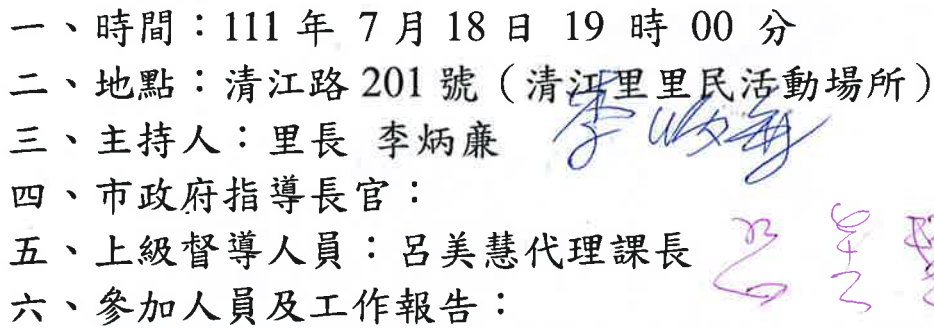 一、時間：111 年 7 月 18 日 19 時 00 分
二、地點：清江路 201 號（清江里里民活動場所）
三、主持人：里長 李炳廉
四、市政府指導長官：
五、上級督導人員：呂美慧代理課長
六、參加人員及工作報告：